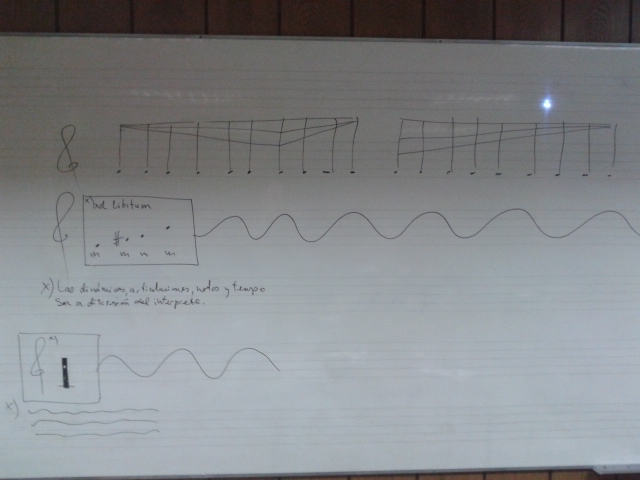 x) ad libitum
#
m m n m
x) Las dinámicas, articulaciones, notas y tempo
son a discreción del interprete.
x)
x)